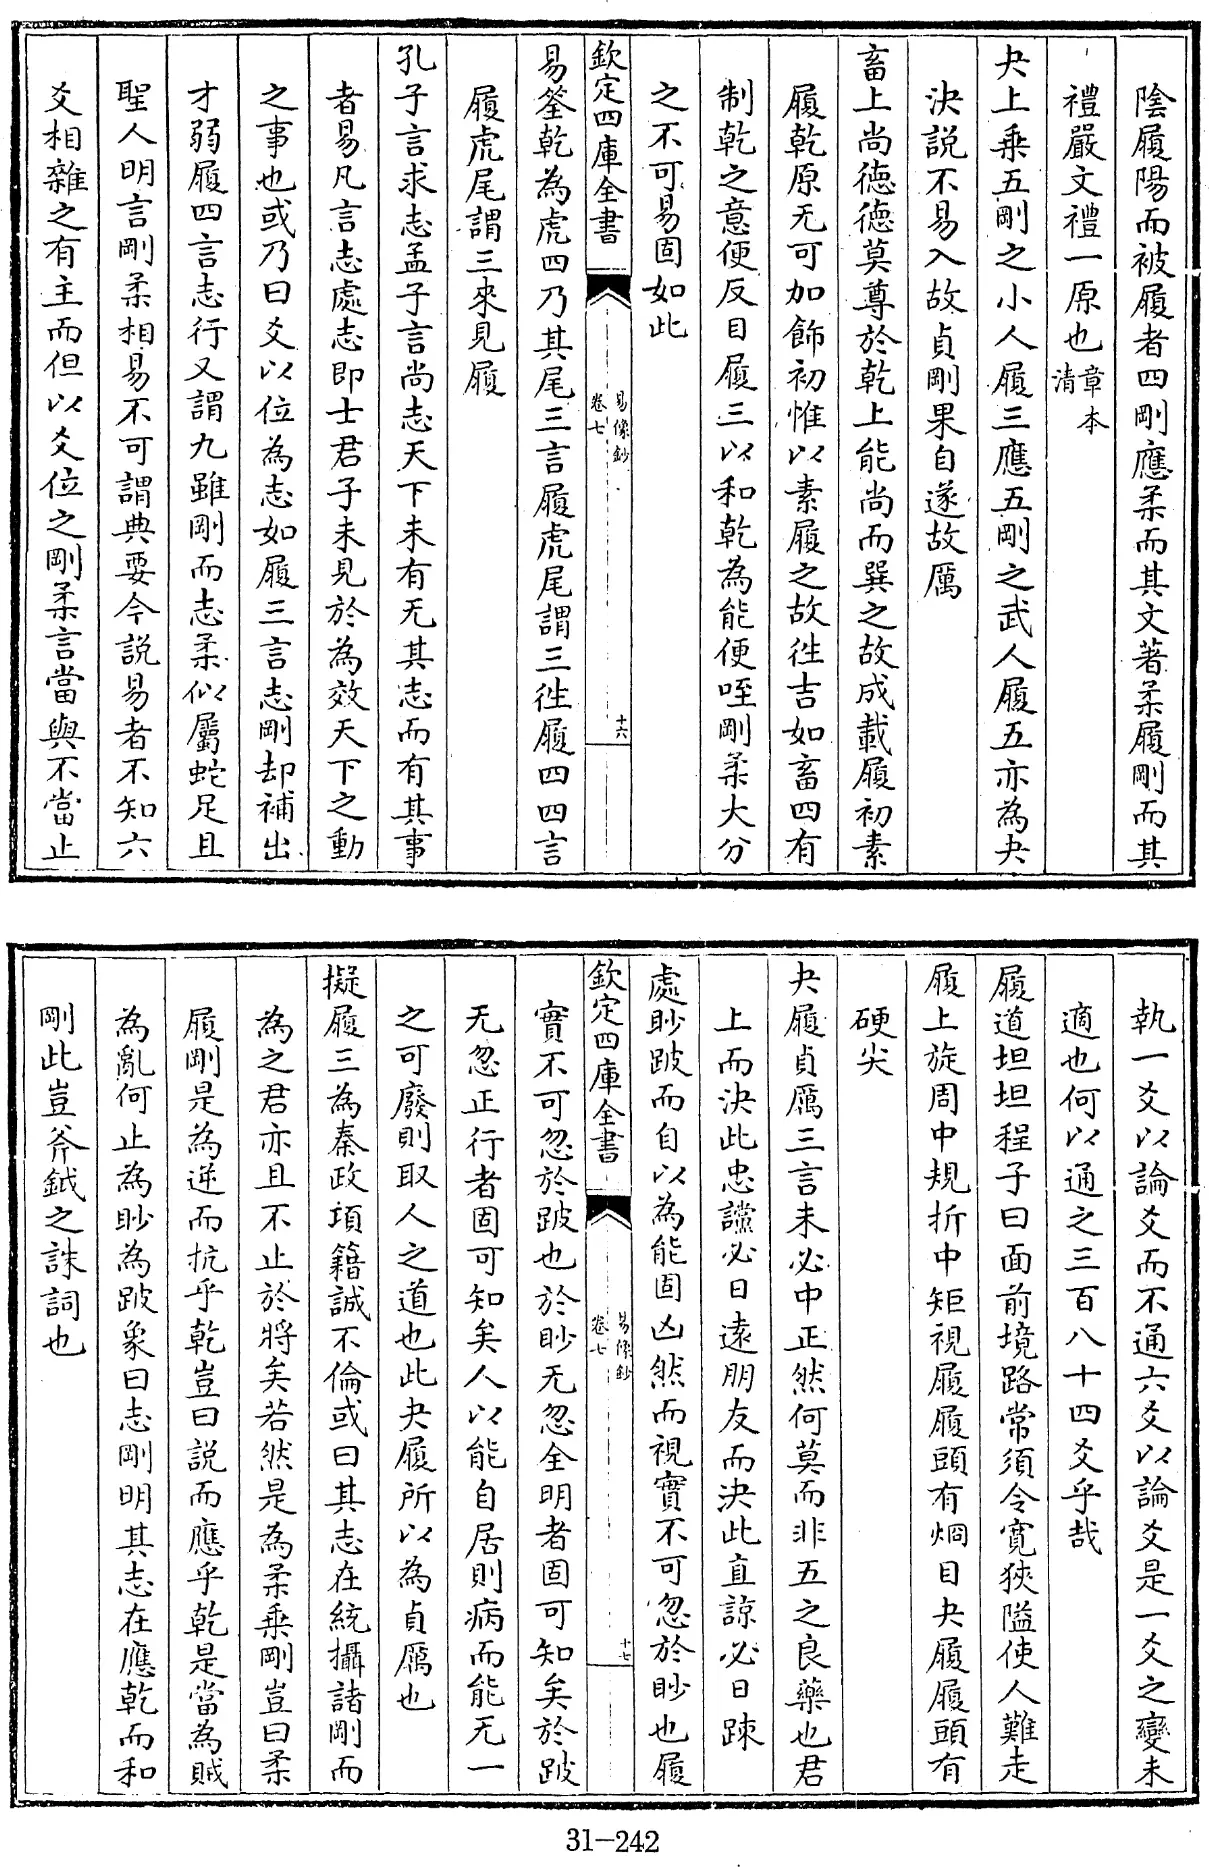 陰履陽而被履者四剛應柔而其文著柔履剛而其
禮嚴文禮一原也章本清
夬上乗五剛之小人履三應五剛之武人履五亦為夬
決説不易入故貞剛果自遂故厲
畜上尚德德莫尊於乾上能尚而巽之故成載履初素
履乾原无可加飾初惟以素履之故徃吉如畜四有
制乾之意便反目履三以和乾為能便咥剛柔大分
之不可易固如此
欽定四庫全書
易像鈔
卷七
十六
易筌乾為虎四乃其尾三言履虎尾謂三徃履四四言
履虎尾謂三來見履
孔子言求志孟子言尚志天下未有无其志而有其事
者易凡言志處志即士君子未見於為效天下之動
之事也或乃曰爻以位為志如履三言志剛却補出
才弱履四言志行又謂九雖剛而志柔似屬蛇足且
聖人明言剛柔相易不可謂典要今説易者不知六
爻相雜之有主而但以爻位之剛柔言當與不當止
執一爻以論爻而不通六爻以論爻是一爻之變未
適也何以通之三百八十四爻乎哉
履道坦坦程子曰面前境路常須令寛狹隘使人難走
履上旋周中規折中矩視履履頭有烱目夬履履頭有
硬尖
夬履貞厲三言未必中正然何莫而非五之良藥也君
上而決此忠讜必日遠朋友而決此直諒必日踈
處眇跛而自以為能固凶然而視實不可忽於眇也履
欽定四庫全書
易像鈔
卷七
十七
實不可忽於跛也於眇无忽全明者固可知矣於跛
无忽正行者固可知矣人以能自居則病而能无一
之可廢則取人之道也此夬履所以為貞厲也
擬履三為秦政項籍誠不倫或曰其志在統攝諸剛而
為之君亦且不止於將矣若然是為柔乗剛豈曰柔
履剛是為逆而抗乎乾豈曰説而應乎乾是當為賊
為亂何止為眇為跛象曰志剛明其志在應乾而和
剛此豈斧鉞之誅詞也
31-242